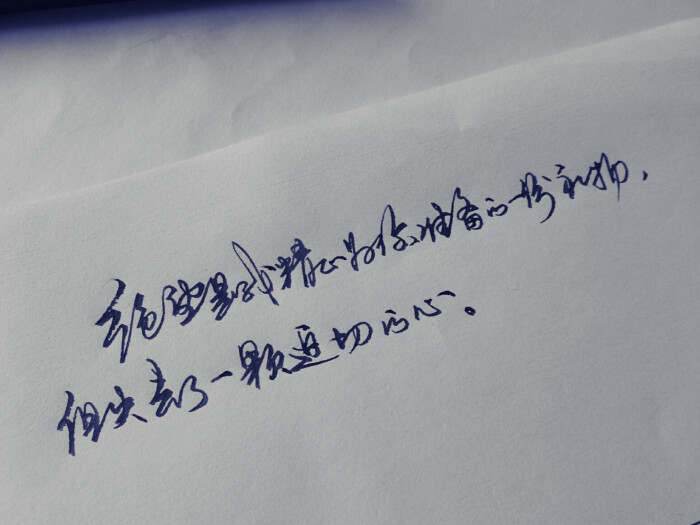 绝望是我精心为你准备的一份礼物,
但失去了一颗迫切的心。